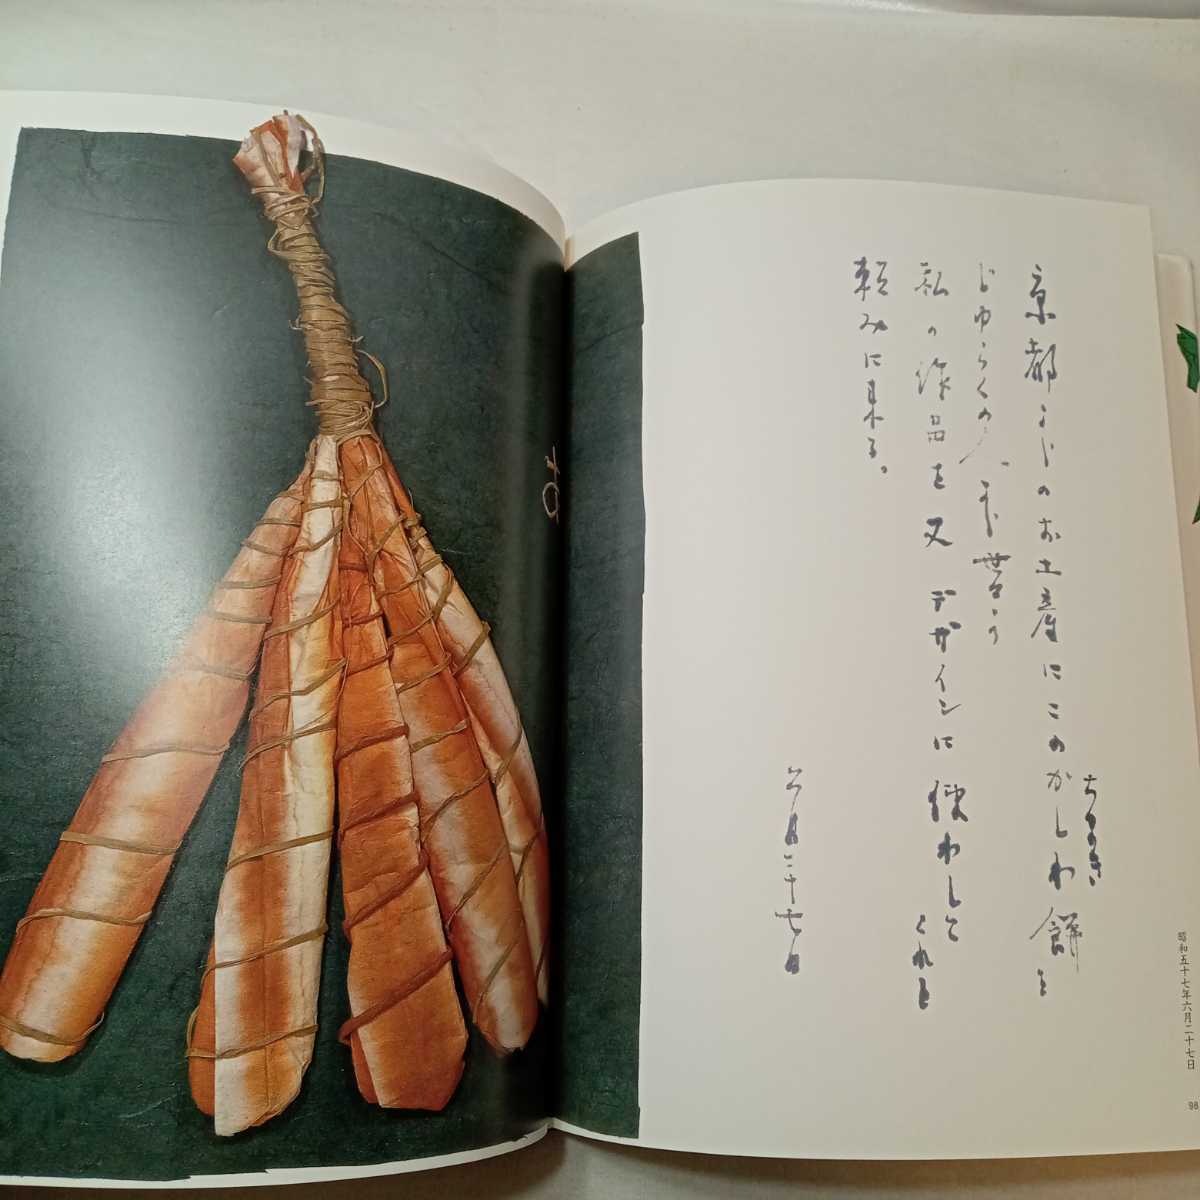 昭和五十七年六月二十七日
98
ちまき
京都よりのお土産にこのかしわ餅を
じゆらくの人より貰う
私の作品を又デザインに使わしてくれと
頼みに来る。
六月二十七日